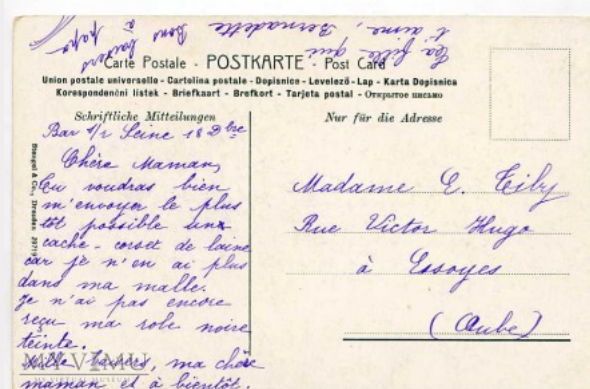 Ta fille qui
t'aime, Bernadette
Bons baisers
à papa
Carte Postale - POSTKARTE - Post Card
Union postale universelle - Cartolina postale - Dopisnice - Levelező-Lap - Karta Dopisnica
Korespondenční lístek - Briefkaart - Brefkort - Tarjeta postal - Открытое письмо
Schriftliche Mitteilungen
Nur für die Adresse
Bar s/r Seine 18 Dbre
Chère Maman,
Tu voudras bien
m'envoyer le plus
tôt possible un
cache-corset de laine
car je n'en ai plus
dans ma malle.
Je n'ai pas encore
reçu ma robe noire
teinte.
Mille baisers, ma chère
maman et à bientôt.
Madame E. Tiby
Rue Victor Hugo
à Essoyes
(Aube)
Stengel & Co., Dresden
MY VIMU